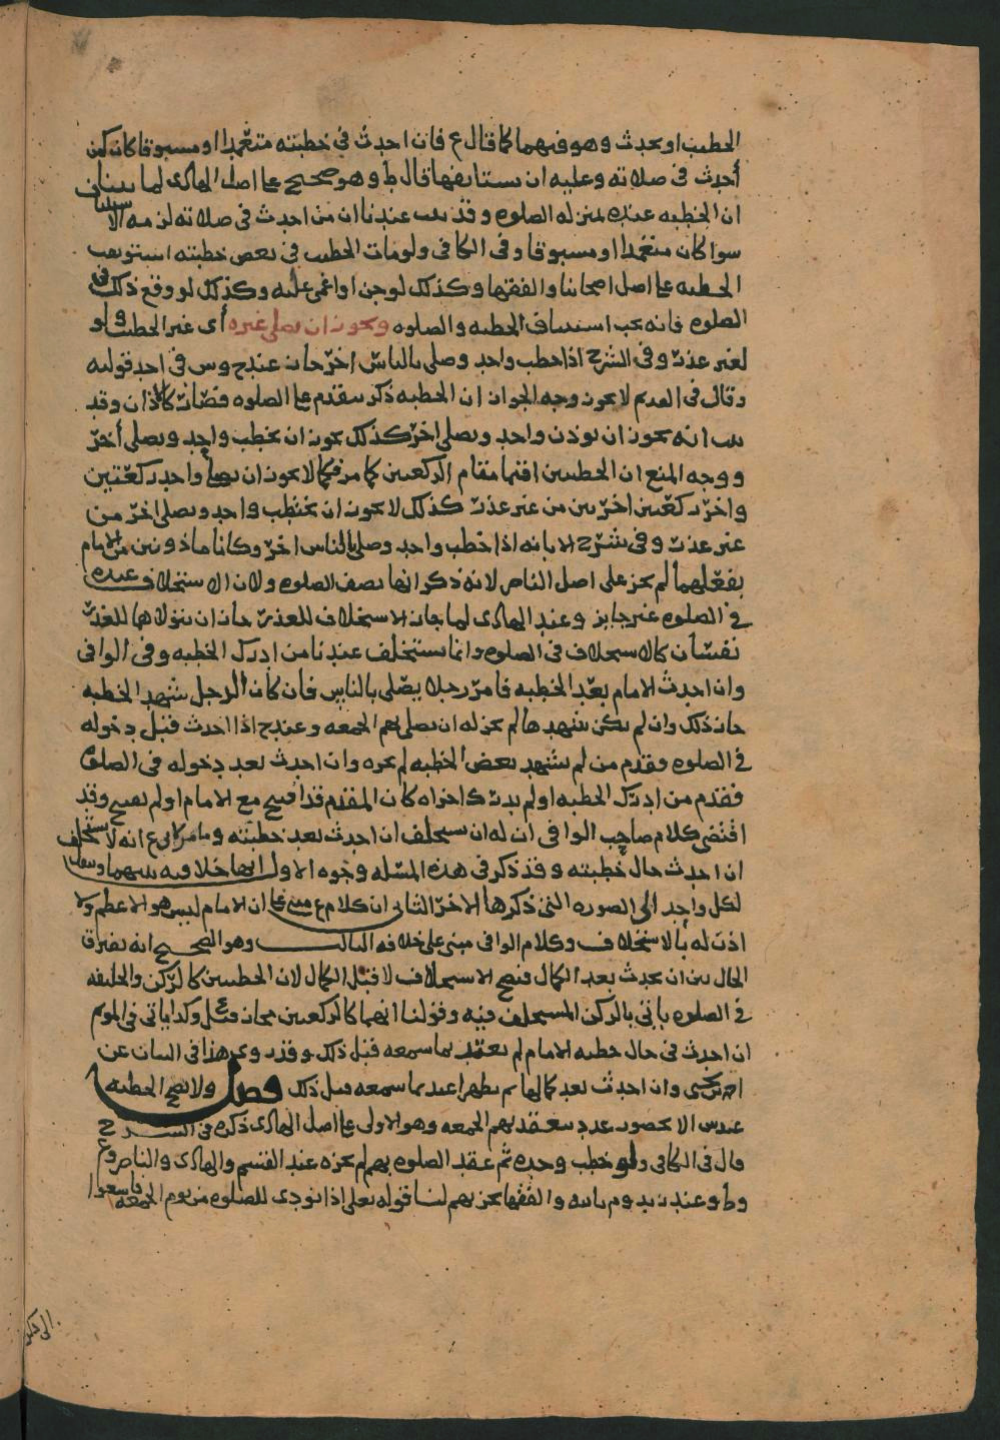 الخطيب او يحدث وهو فيهما كما قال ع فان احدث في خطبته متعمدا او مسبوقا كان كمن
أحدث في صلاته وعليه ان يستانفها قال ط وهو صحيح على اصل الهادي لما بينا ان
ان الخطبه عنده بمنزله الصلوه وقد بينا عندنا ان من احدث في صلاته لزمه الاستيناف
سوا كان متعمدا او مسبوقا وفي الكافي ولو مات الخطيب في بعض خطبته استونفت
الخطبه على اصل اصحابنا والفقها وكذلك لو جن او اغمي عليه وكذلك لو وقع ذلك في
الصلوه فانه يجب استيناف الخطبه والصلوه ويجوز ان يصلي غيره أي غير الخطيب ولو
لغير عذر وفي الشرح اذا خطب واحد وصلى بالناس اخر جاز عند ح وس في احد قوليه
وقال في القديم لا يجوز وجه الجواز ان الخطبه ذكر يتقدم على الصلوه فصار كالاذان وقد
بينا انه يجوز ان يوذن واحد ويصلي اخر كذلك يجوز ان يخطب واحد ويصلي أخر
ووجه المنع ان الخطبتين اقيما مقام الركعتين كما مر فكما لا يجوز ان يصلي واحد ركعتين
واخر ركعتين اخريين من غير عذر كذلك لا يجوز ان يخطب واحد ويصلي اخر من
غير عذر وفي شرح الابانه اذا خطب واحد وصلى بالناس اخر وكانا ماذونين من الامام
بفعلهما لم يجز على اصل الناصر لانه ذكر انها نصف الصلوه ولان الاستخلاف عنده
في الصلوه غير جايز وعند الهادي لما جاز الاستخلاف للعذر جاز ان يتولاهما للعذر
نفسان كالاستخلاف في الصلوه وانما يستخلف عندنا من ادرك الخطبه وفي الوافي
وان احدث الامام بعد الخطبه فامر رجلا يصلي بالناس فان كان الرجل شهد الخطبه
جاز ذلك وان لم يكن شهدها لم يجز له ان يصلي بهم الجمعه وعند ح اذا احدث قبل دخوله
في الصلوه فقدم من لم يشهد بعض الخطبه لم يجزه وان احدث بعد دخوله في الصلوه
فقدم من ادرك الخطبه او لم يدرك اجزاه كان المقدم قد افتتح مع الامام او لم يفتتح وقد
اقتضى كلام صاحب الوافي ان له ان يستخلف ان احدث بعد خطبته وما مر لابي ع انه لا يستخلف
ان احدث حال خطبته وقد ذكر في هذه المسله وجوه الاول انها خلافيه بينهما
لكل واحد الى الصوره التي ذكرها الاخر الثاني ان كلام ع مبني على ان الامام ليس هو الاعظم ولا
اذن له بالاستخلاف وكلام الوافي مبني على خلافه الثالث وهو الصحيح انه يفترق
الحال بين ان يحدث بعد الكمال فيصح الاستخلاف لا قبل الكمال لان الخطبتين كالركن والخليفه
في الصلوه ياتي بالركن المستخلف فيه وقولنا انهما كالركعتين مجاز وكذا ياتي في الموتم
ان احدث في حال خطبه الامام لم يعتد بما سمعه قبل ذلك وقد روي هذا في البيان عن
احمد بن يحيى وان احدث بعد كمالها ثم تطهر اعتد بما سمعه قبل ذلك فصل ولا تصح الخطبه
الا بحضور عدد تنعقد بهم الجمعه وهو الاولى على اصل الهادي ذكره في الشرح
قال في الكافي ولو خطب وحده ثم عقد الصلوه بهم لم يجزه عند القسم والهادي والناصر وع
وط وعند زيد وم بالله والفقها يجزيهم لنا قوله تعلى اذا نودي للصلوه من يوم الجمعه فاسعوا
الى ذكر